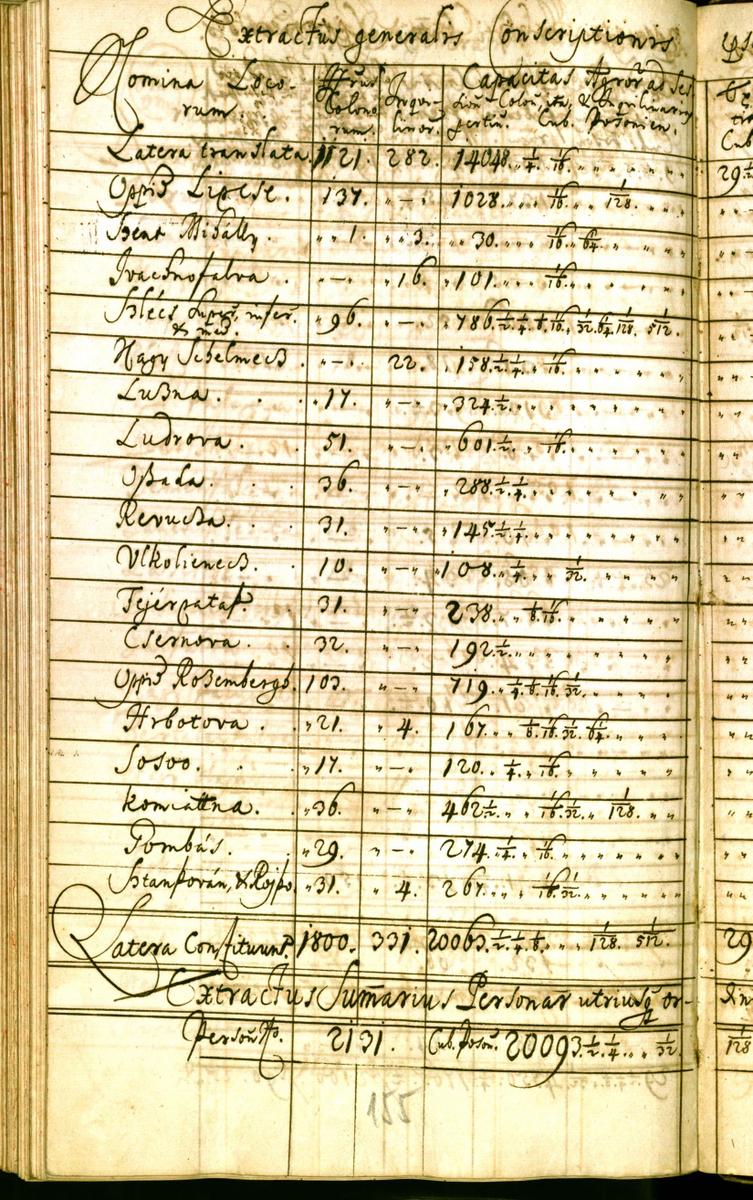 Extractus generalis Conscriptionis
Nomina Locorum. Nrus Colonorum. Inquilinor. Capacitas Agror ad Sessiōn. Colon., ita, & Inquilinares Cub. Posonien.
Latera translata. 1121. 282. 14048. 1/4 1/16.
Oppid Lipcse. 137. „—„ 1028. 1/16. 1/128.
Szent Mihally. „ 1. „ 3. 30. 1/16. 1/64.
Ivachnofalva. „—. „ 16. 101. 1/16.
Szlécs super. infer. & med. „ 96. „—. 786. 1/2. 1/4. 1/8. 1/16. 1/32. 1/64. 1/128. 1/512.
Nagy Schelmecz. „—. 22. 158. 1/2. 1/4. 1/16.
Luzna. „ 17. „—„ 324. 1/2.
Ludrova. 51. „—„ 601. 1/2. 1/16.
Oszada. 36. „—„ 288. 1/2. 1/4.
Revucza. 31. „—„ 145. 1/2. 1/4.
Vlkolienecz. 10. „—„ 108. 1/4. 1/32.
Fejérpatak. 31. „—„ 238. 1/8. 1/16.
Csernova. 32. „—„ 192. 1/2.
Oppid Rozembergh. 103. „—„ 719. 1/4. 1/8. 1/16. 1/32.
Hrbotova. „ 21. „ 4. 167. 1/8. 1/16. 1/32. 1/64.
Sosov. „ 17. „—„ 120. 1/4. 1/16.
Komiattna. „ 36. „—„ 462. 1/2. 1/16. 1/32. 1/128.
Pombás. „ 29. „—„ 274. 1/4. 1/16.
Stankován, & Rojko „ 31. „ 4. 267. 1/16. 1/32.
Latera Constituunt. 1800. 331. 20063. 1/2. 1/4. 1/8. 1/128. 1/512.
Extractus Sumarius Personar utriusq or-
2131. Cub. Poson. 20093. 1/2. 1/4. 1/32.
155